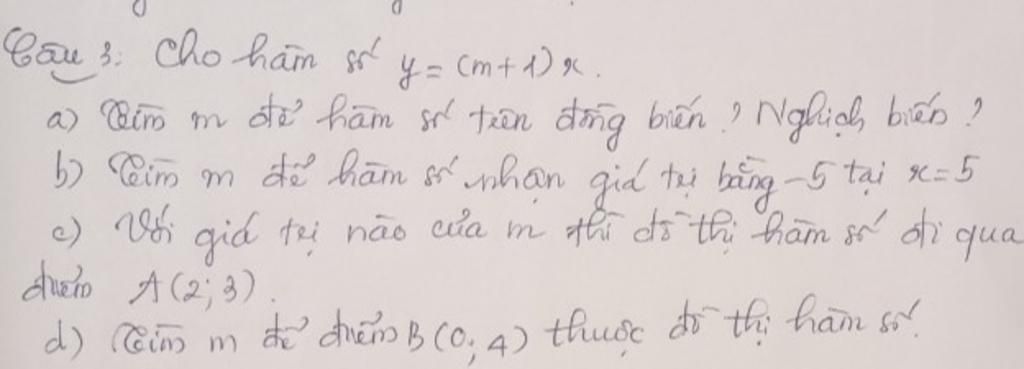 Câu 3: Cho hàm số y = (m+1)x.
a) Tìm m để hàm số trên đồng biến? Nghịch biến?
b) Tìm m để hàm số nhận giá trị bằng -5 tại x=5
c) Với giá trị nào của m thì đồ thị hàm số đi qua
điểm A(2;3).
d) Tìm m để điểm B(0;4) thuộc đồ thị hàm số.